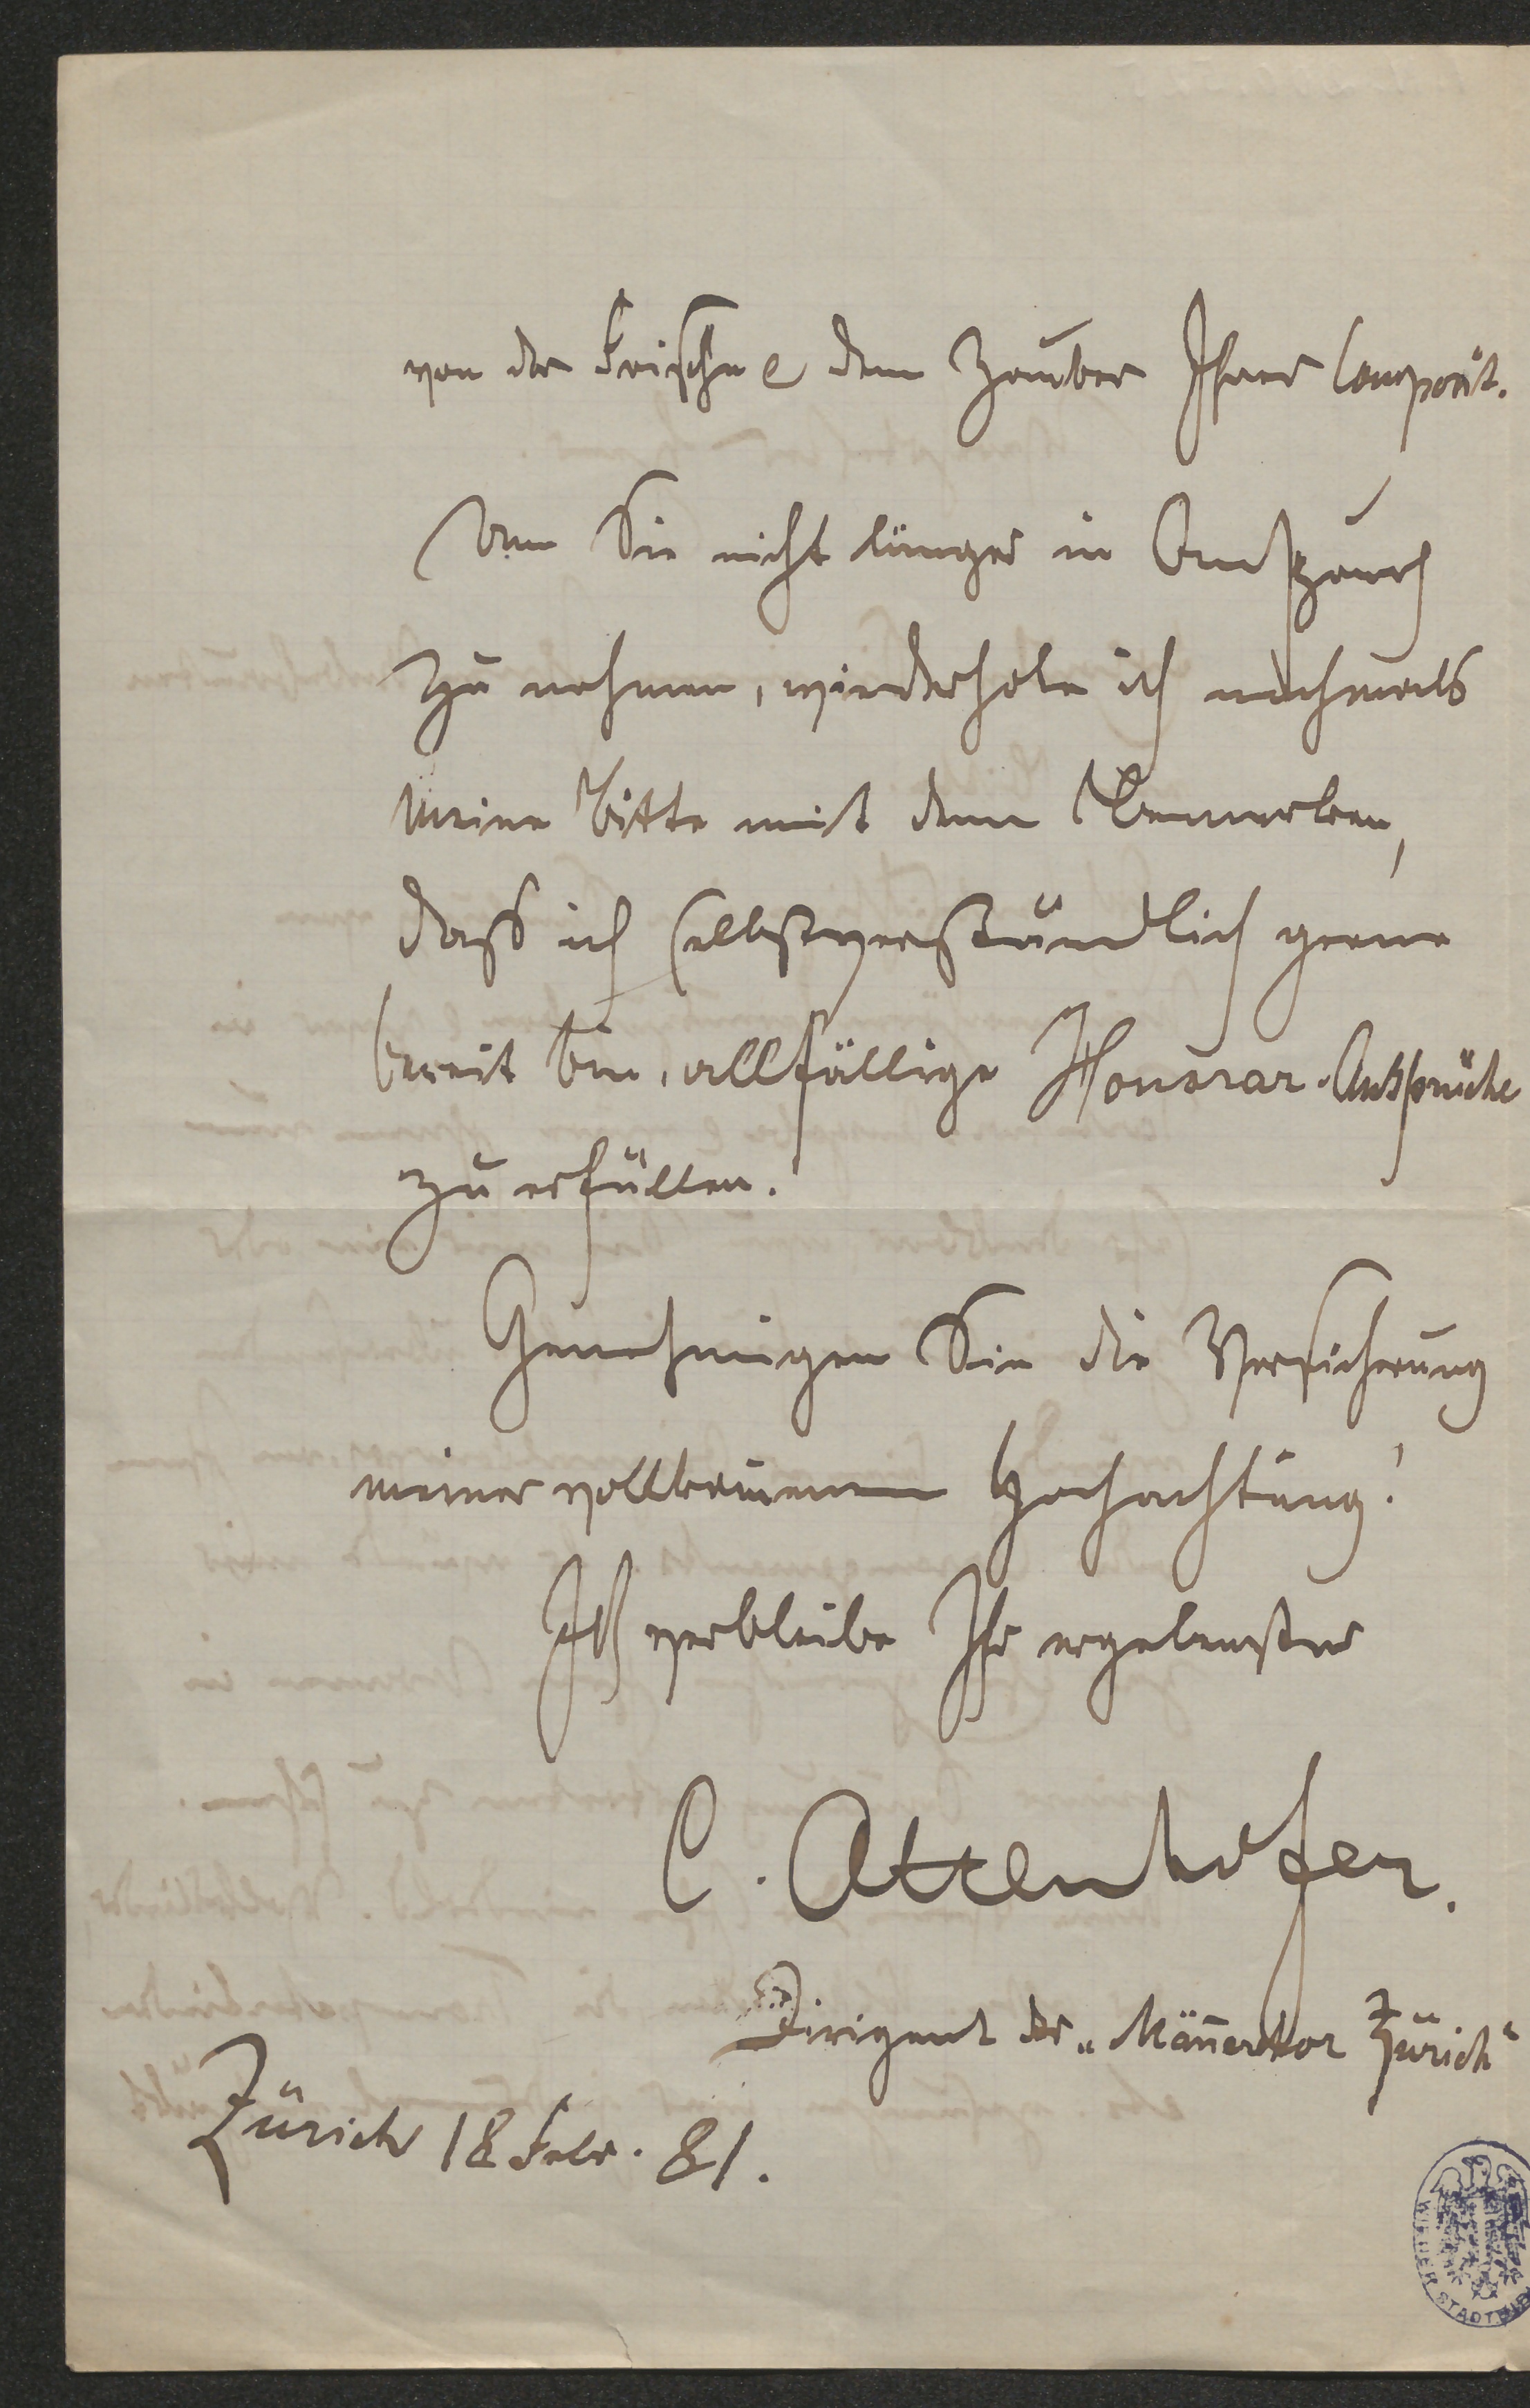 von der Frische & dem Zauber Ihrer Composit.
Um Sie nicht länger in Anspruch
zu nehmen, wiederhole ich nochmals
meine Bitte mit dem Bemerken,
daß ich selbstverständlich gerne
bereit bin, allfällige Honorar-Ansprüche
zu erfüllen.
Genehmigen Sie die Versicherung
meiner vollkommenen Hochachtung!
Ich verbleibe Ihr ergebenster
C. Attenhofer.
Dirigent des „Mäñerchor Zürich“
Zürich 18 Febr. 81.
WIENER STADTBIB